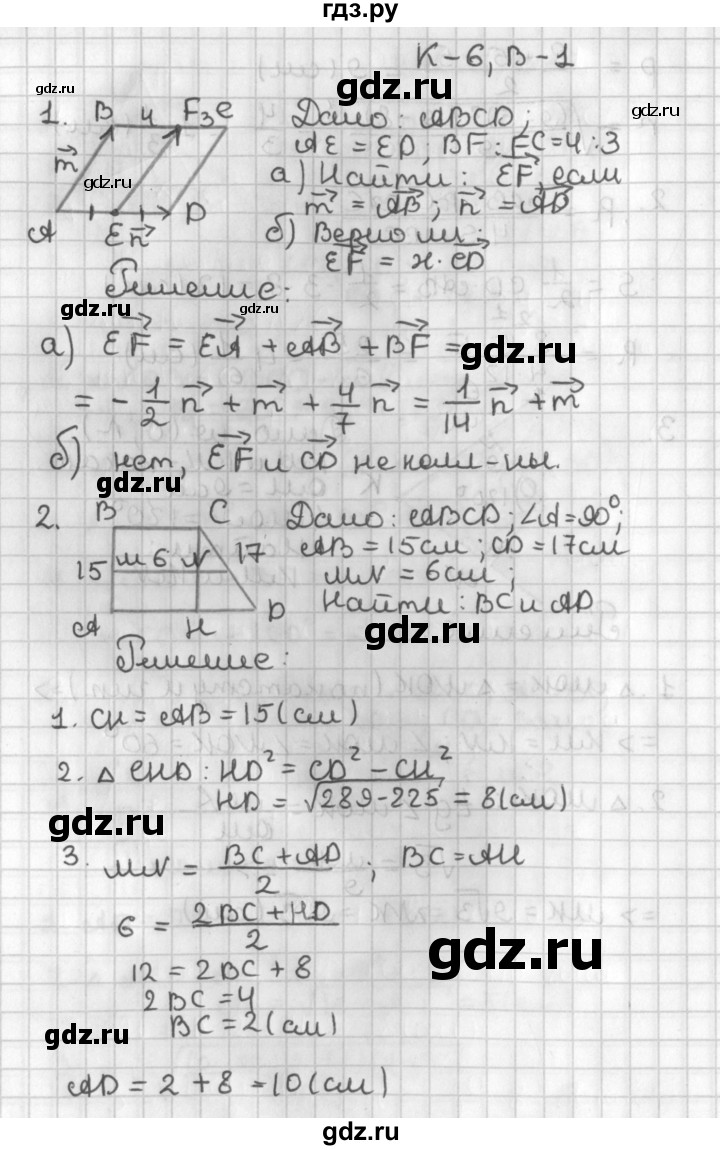 гдз.ру
К-6, В-1
gdz.ru
1. B 4 F 3 C
m
A E n D
gdz.ru
Дано: ABCD;
AE = ED; BF : FC = 4 : 3
а) Найти: EF, если
m = AB; n = AD
б) Верно ли:
EF = x · CD
gdz.ru
Решение:
gdz.ru
gdz.ru
а) EF = EA + AB + BF =
gdz.ru
= - 1/2 n + m + 4/7 n = 1/14 n + m
б) нет, EF и CD не колл-ны.
gdz.ru
2. B C
15 M 6 N 17
A H D
Дано: ABCD; ∠A = 90°;
AB = 15 см; CD = 17 см
MN = 6 см;
Найти: BC и AD
gdz.ru
Решение:
1. CH = AB = 15 (см)
2. △ CHD: HD² = CD² - CH²
HD = √289-225 = 8 (см)
gdz.ru
3. MN = BC + AD / 2 ; BC = AH
6 = 2BC + HD / 2
gdz.ru
12 = 2BC + 8
2BC = 4
BC = 2 (см)
gdz.ru
gdz.ru
AD = 2 + 8 = 10 (см)
gdz.ru